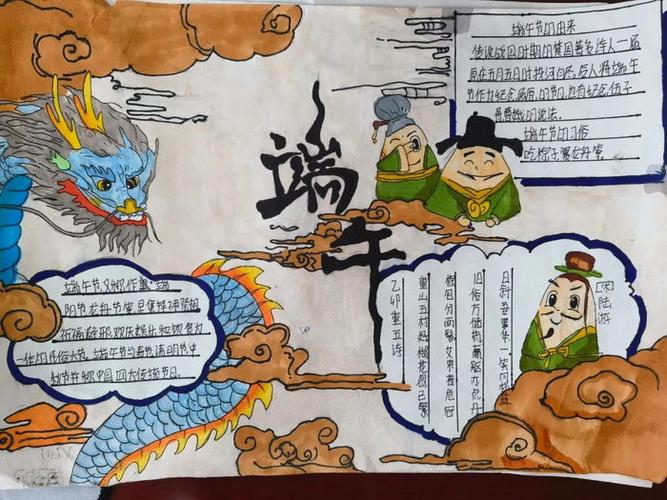 端午
端午节的由来
传说战国时期的楚国著名诗人一屈
原在五月五日时投江自尽,后人将端午
节作为纪念屈原的节日,也有纪念伍子
的说法.
端午节的习俗
吃粽子赛龙舟等
端午节又叫作重
阳节龙舟节等是集拜神祭祖
祈福辟邪欢庆娱乐和饮食为
一体的民俗大节,端午节与春节清明节中
秋节并称中国四大传统节日.
[宋]陆游
日斜吾事毕一笑向杯
旧俗方储药羸躯亦点丹
粽包分两髻艾束著危冠
重山五村好榴花忽已繁
乙卯重五诗